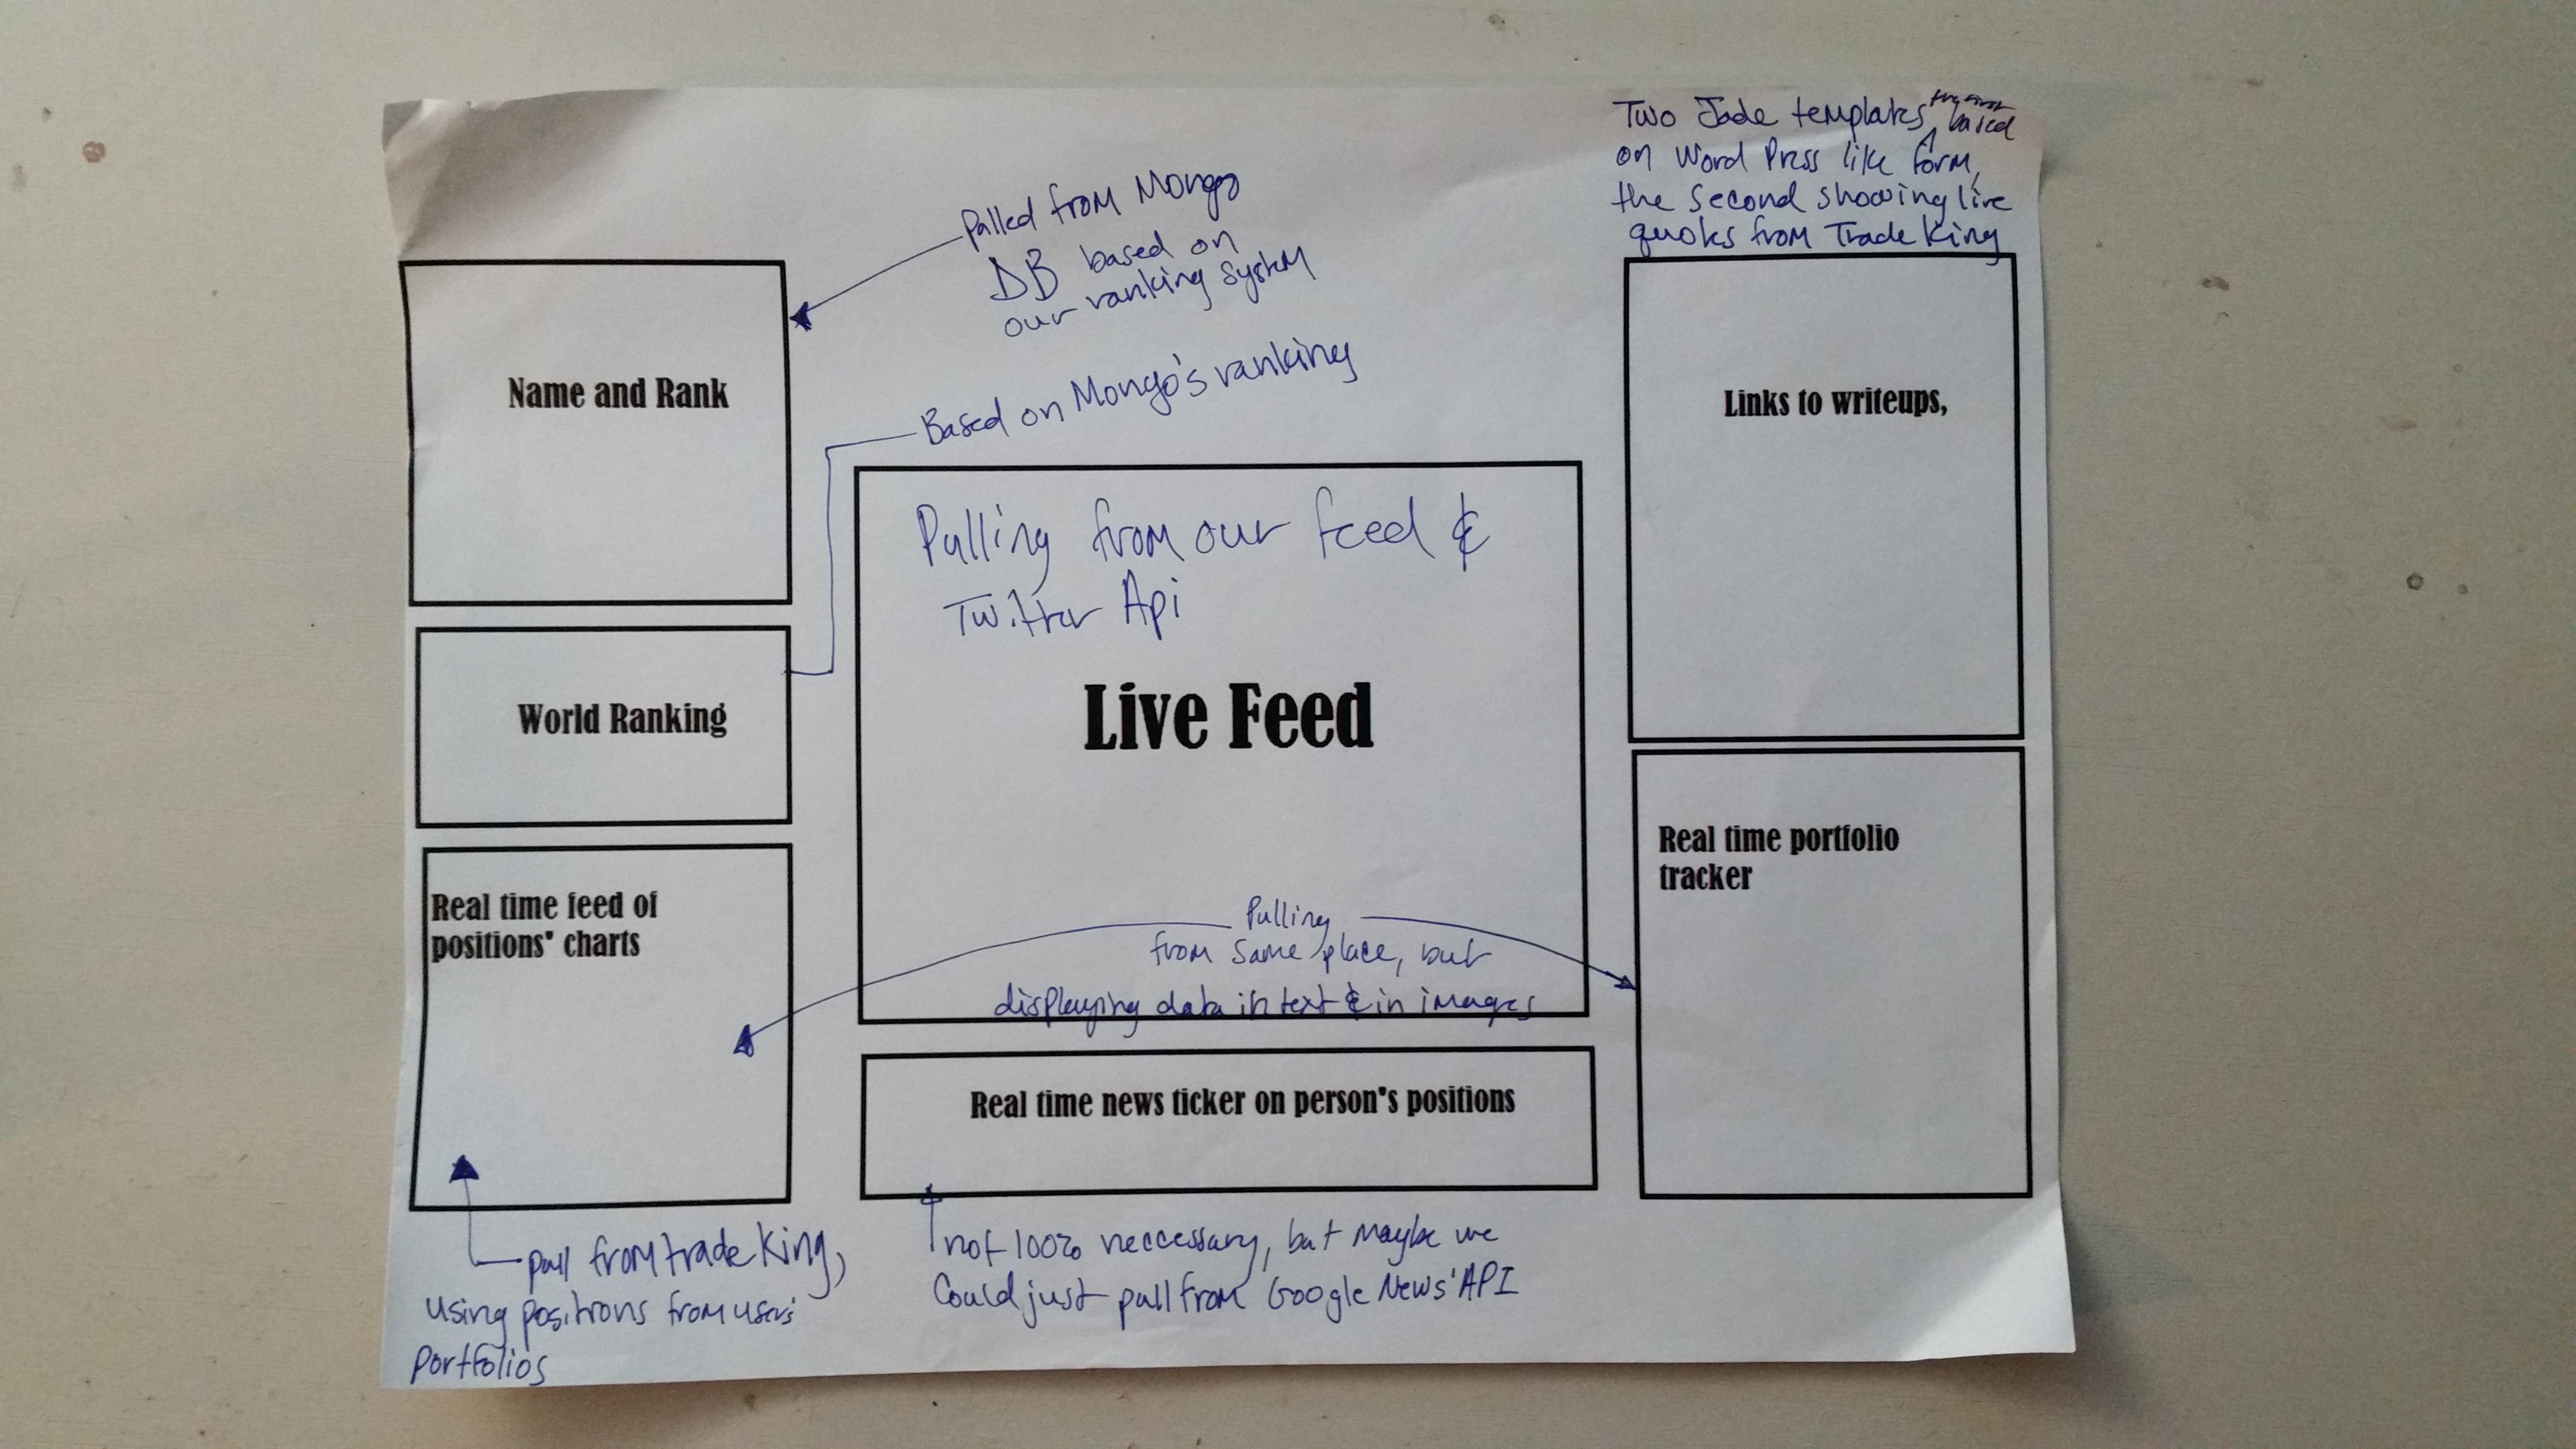 Two Jade templates, the first based
on Word Press like form,
the second showing live
quotes from TradeKing
Pulled from Mongo
DB based on
our ranking system
Name and Rank
Based on Mongo's ranking
Links to writeups,
Pulling from our feed &
Twitter Api
World Ranking
Live Feed
Real time feed of
positions" charts
Real time portfolio
tracker
Pulling
from same place, but
displaying data in text & in images
Real time news ticker on person"s positions
pull from trade King,
using positions from users'
portfolios
not 100% neccessary, but maybe we
Could just pull from Google News' API